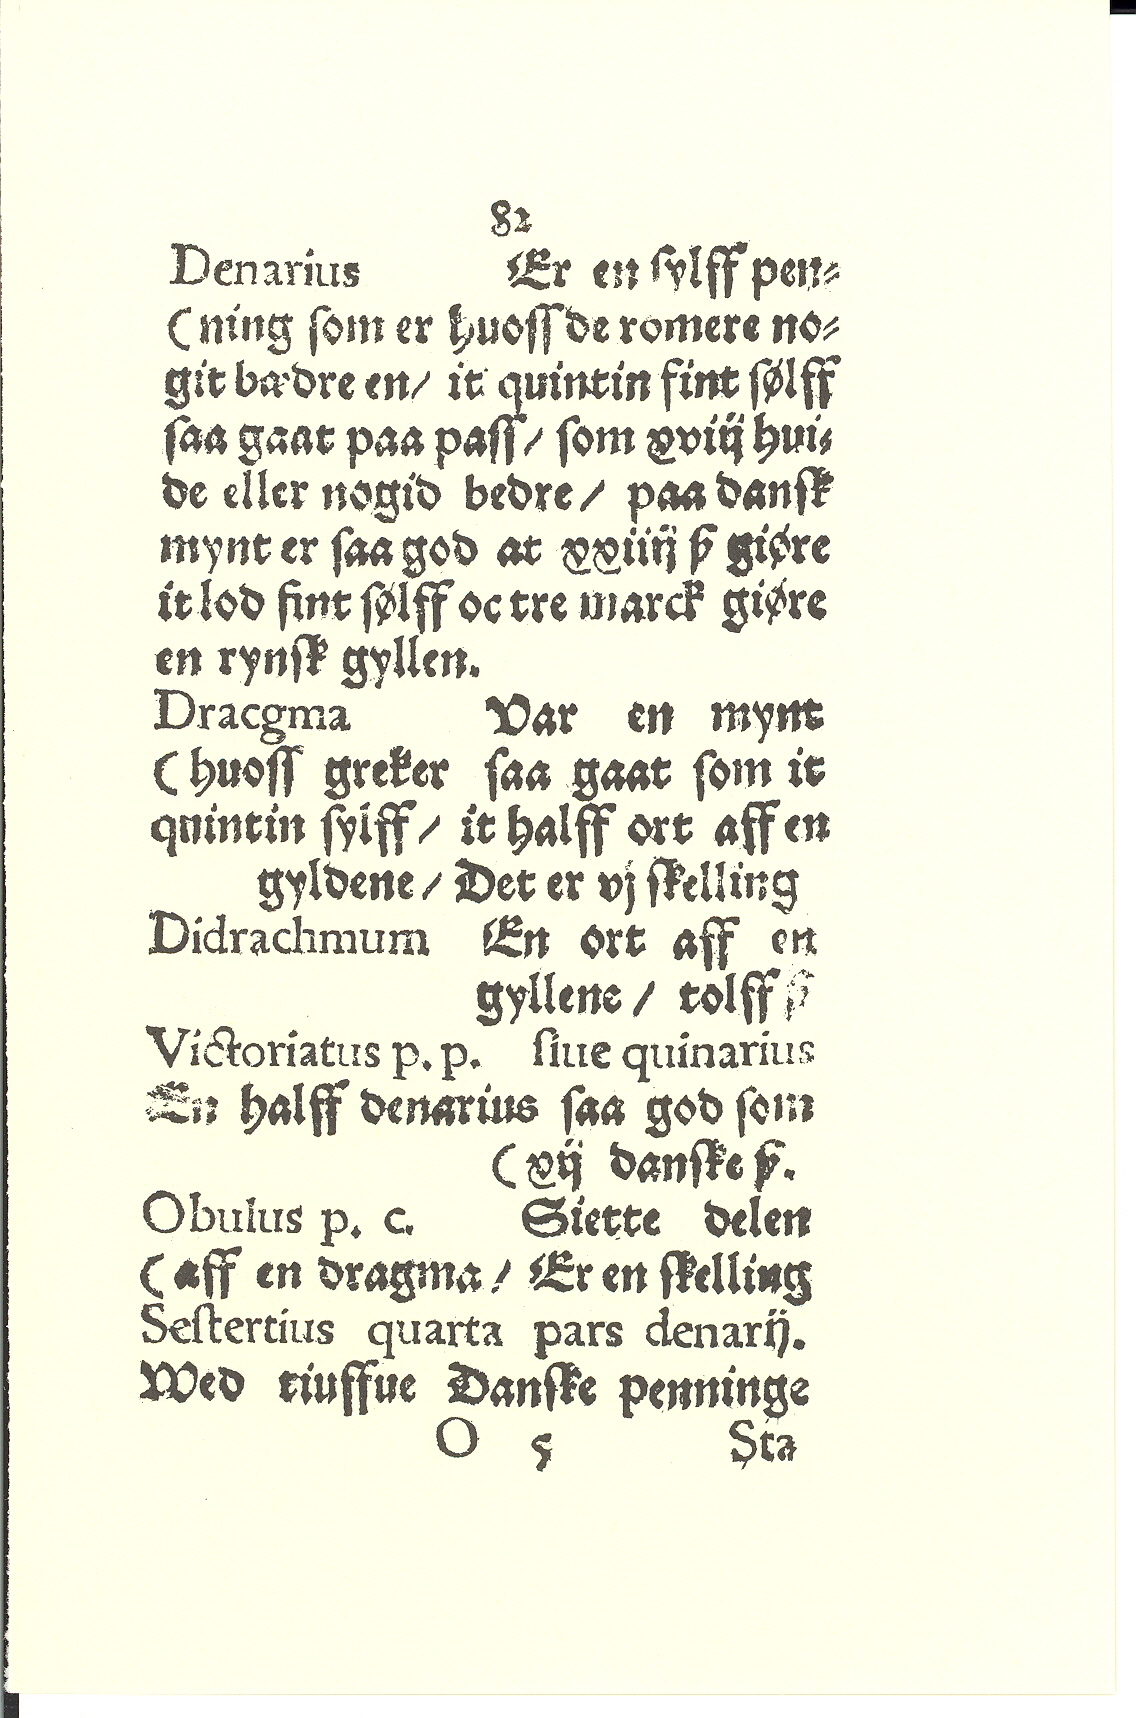 82
Denarius Er en sylff pen⸗
(ning som er huoss de romere no⸗
git bædre en/ it quintin fint sølff
saa gaat paa pass/ som xviij hui⸗
de eller nogid bedre/ paa dansk
mynt er saa god at xxiiij ꝟ giøre
it lod fint sølff oc tre marck giøre
en rynsk gyllen.
Dracgma Var en mynt
(huoss greker saa gaat som it
quintin sylff/ it halff ort aff en
gyldene/ Det er vj skelling
Didrachmum En ort aff en
gyllene/ tolff ꝟ
Victoriatus p. p. siue quinarius
En halff denarius saa god som
(xij danske ꝟ.
Obulus p. c. Siette delen
(aff en dragma/ Er en skelling
Sestertius quarta pars denarij.
Wed tiuffue Danske penninge
O 5 Sta